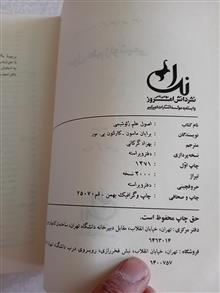 ندا
نشر دانش امروز
وابسته به مؤسسه انتشارات امیرکبیر
نام کتاب : اصول علم ژئوشیمی
نویسندگان : برایان ماسون ـ کارلتون بی. مور
مترجم : بهزاد گرکانی
نسخه‌پردازی : دفتر ویراسته
چاپ اول : ۱۳۷۱
تیراژ : ۳۰۰۰ نسخه
حروفچینی : دفتر ویراسته
چاپ و صحافی : چاپ وگرافیک بهمن ـ قم ۲۵۰۷۰
حق چاپ محفوظ است.
دفتر مرکزی : تهران، خیابان انقلاب، مقابل دبیرخانه دانشگاه تهران، ساختمان
۶۴۱۳۰۱۴
فروشگاه : تهران، خیابان انقلاب، نبش فخررازی، روبروی درب دانشگاه
۶۴۰۰۷۵۷